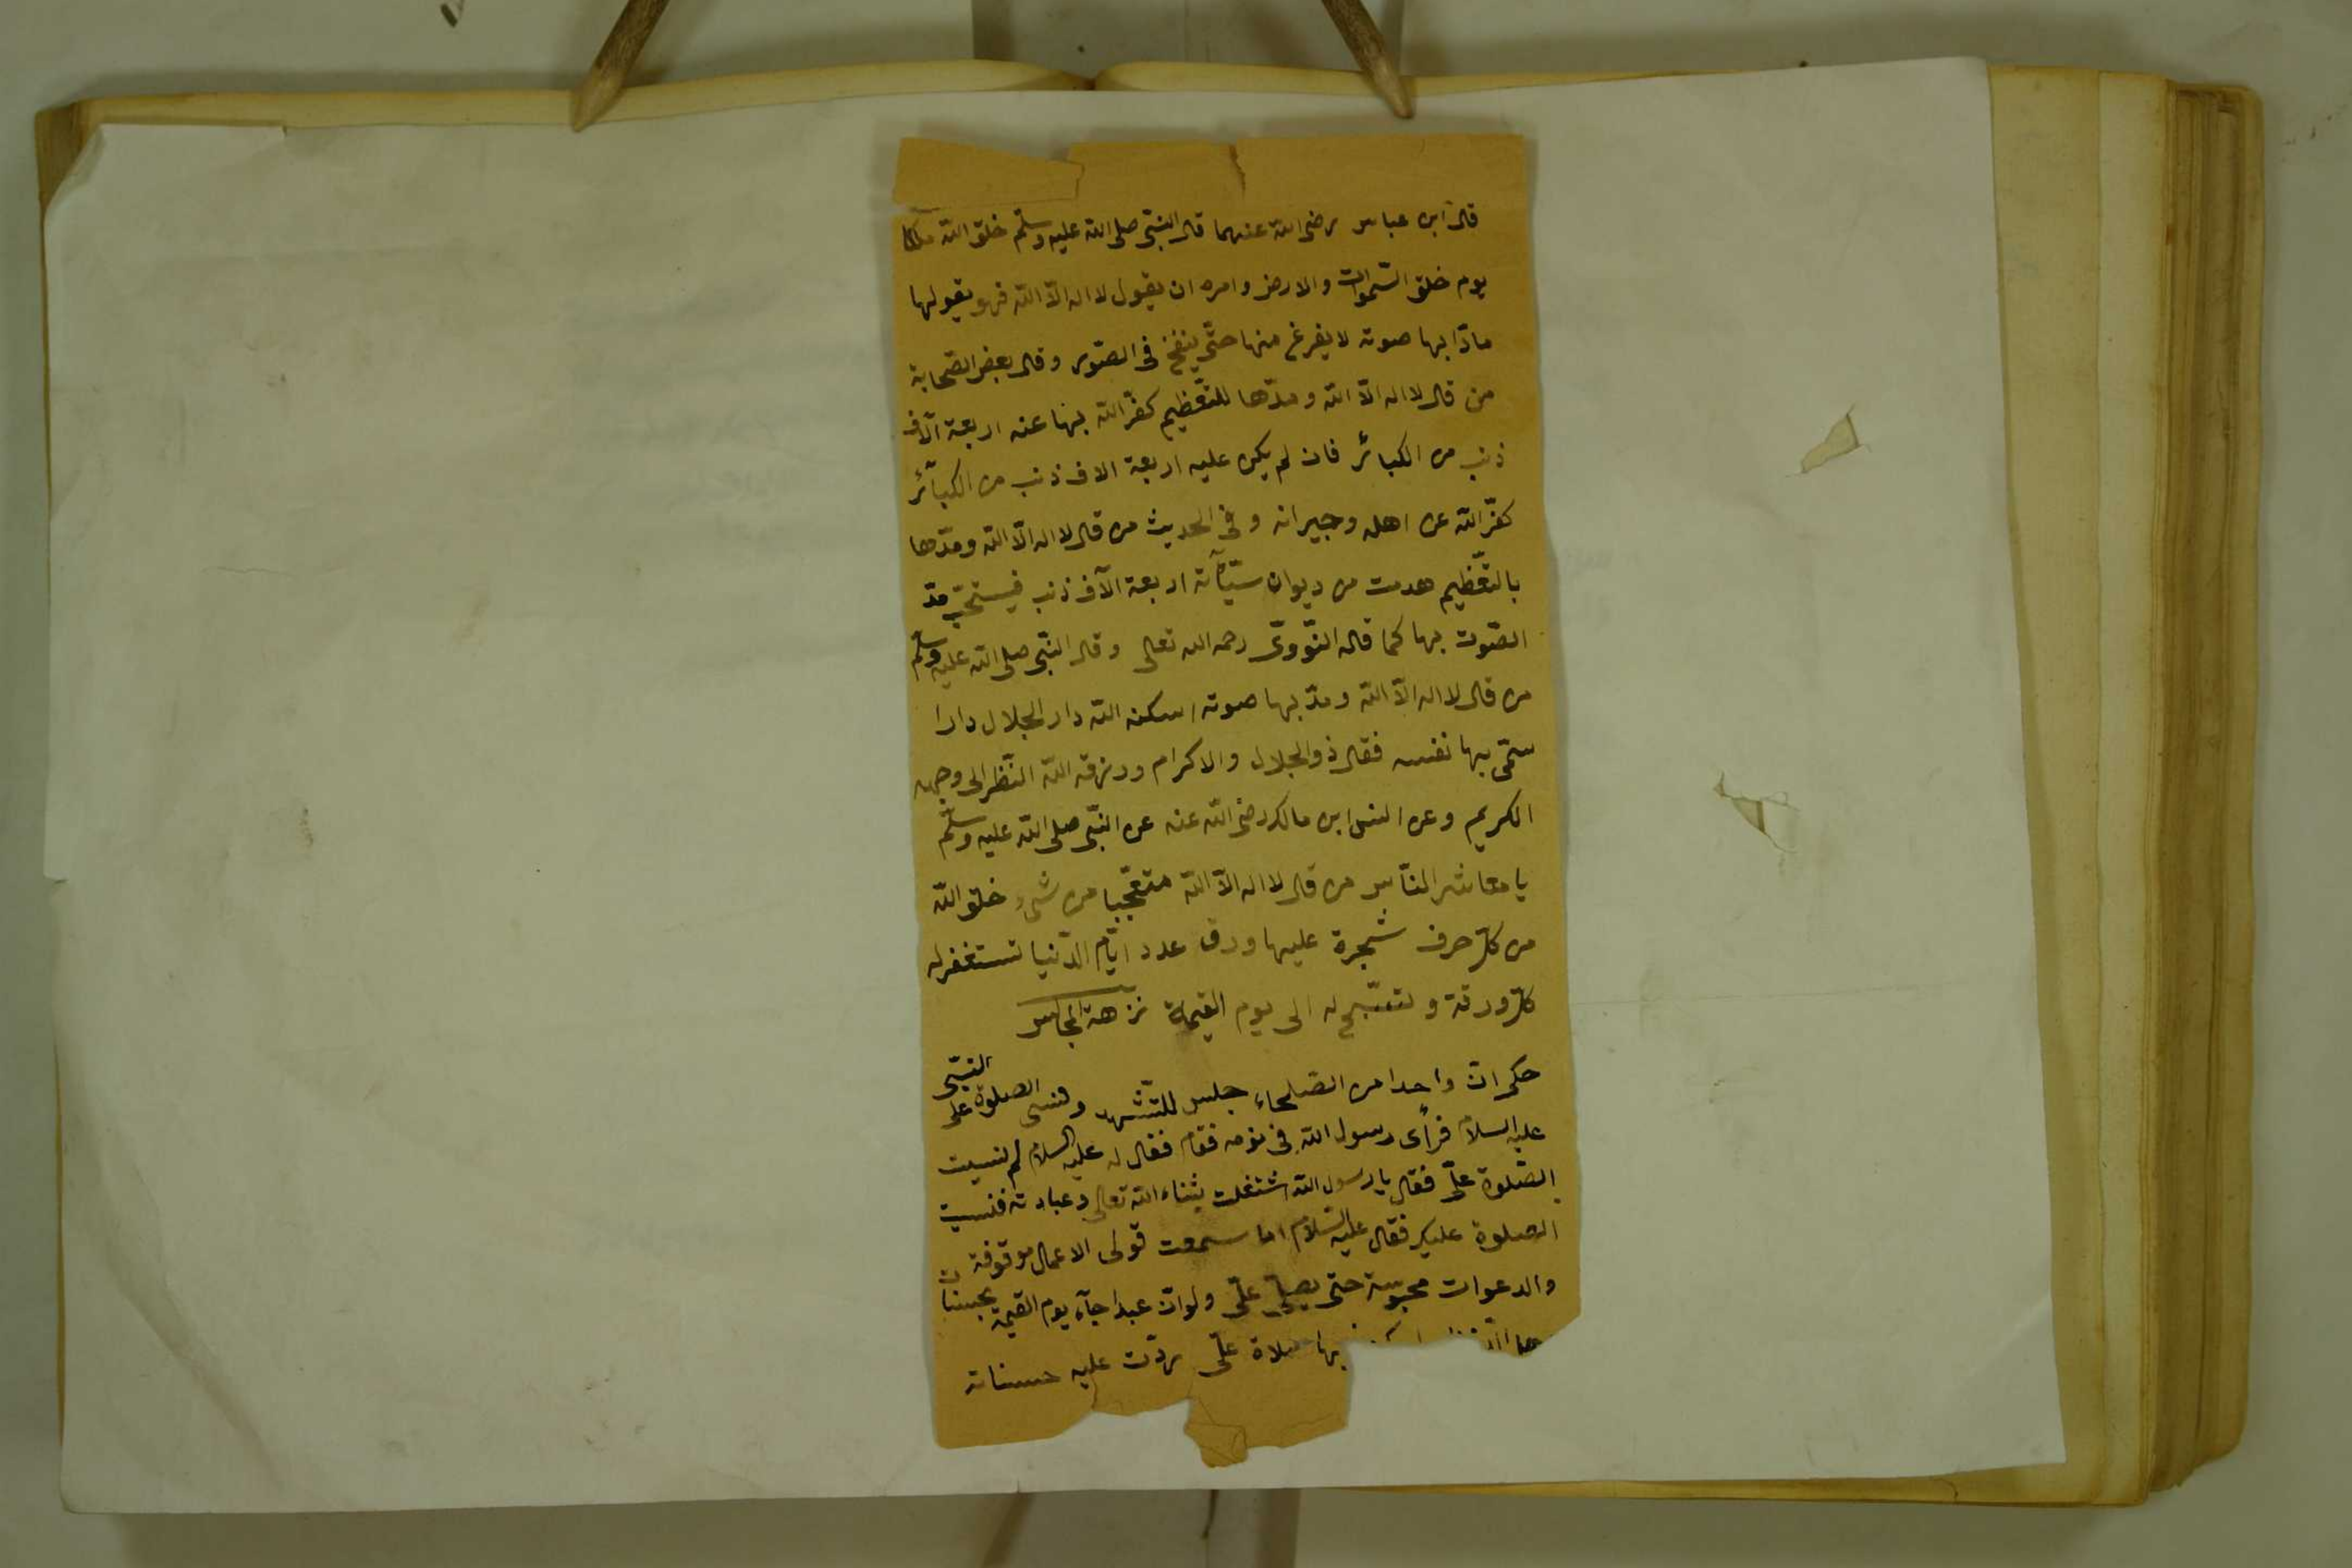 قال ابن عباس رضى الله عنهما قال النبّى صلى الله عليه وسلّم خلق الله ملكا
يوم خلق السّموات والارض وامره ان يقول لا اله الّا الله فهو يقولها
مادّا بها صوته لا يفرغ منها حتّى ينفخ فى الصّور وقال بعض الصّحابة
من قال لا اله الّا الله ومدّها للتّعظيم كفّر الله بها عنه اربعة آلاف
ذنب من الكبائر فان لم يكن عليه اربعة الاف ذنب من الكبآئر
كفّر الله عن اهله وجيرانه وفى الحديث من قال لا اله الّا الله ومدّها
بالتّعظيم هدمت من ديوان سيّآته اربعة آلاف ذنب فيستحبّ مدّ
الصّوت بها كما قاله النّووىّ رحمه الله تعالى وقال النّبى صلى الله عليه وسلّم
من قال لا اله الّا الله ومدّ بها صوته اسكنه الله دار الجلال دارا
سمّى بها نفسه فقال ذو الجلال والاكرام ورزقه الله النّظر الى وجهه
الكريم وعن انس ابن مالك رضى الله عنه عن النبّى صلى الله عليه وسلّم
يا معاشر النّاس من قال لا اله الّا الله متعجّبا من شىء خلق الله
من كلّ حرف شجرة عليها ورق عدد ايّام الدّنيا تستغفر له
كلّ ورقة وتسبّح له الى يوم القيمة نزهة المجالس
حكى انّ واحدا من الصّلحاء جلس للتّشهد ونسى الصلوة على النبّى
عليه السلام فرأى رسول الله فى نومه فقام فقال له عليه السلام لم نسيت
الصّلوة علىّ فقال يا رسول الله اشتغلت بثناء الله تعالى وعبادته فنسيت
الصلوة عليك فقال عليه السّلام اما سمعت قولى الاعمال موقوفة
والدعوات محبوسة حتى يصلّى علىّ ولو انّ عبدا جآء يوم القيمة بحسنات
بها صلاة علىّ ردّت عليه حسناته